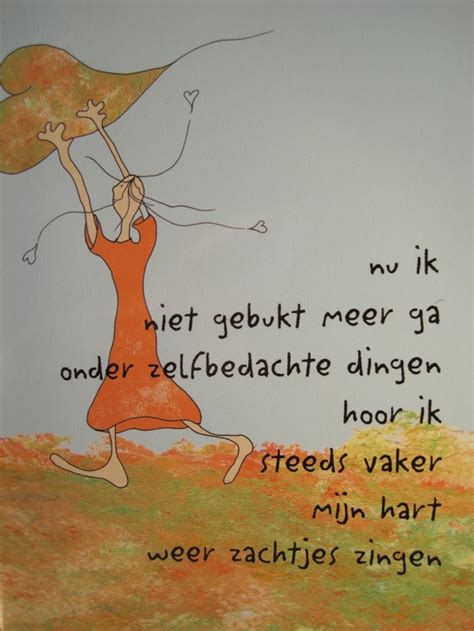 nu ik
niet gebukt meer ga
onder zelfbedachte dingen
hoor ik
steeds vaker
mijn hart
weer zachtjes zingen